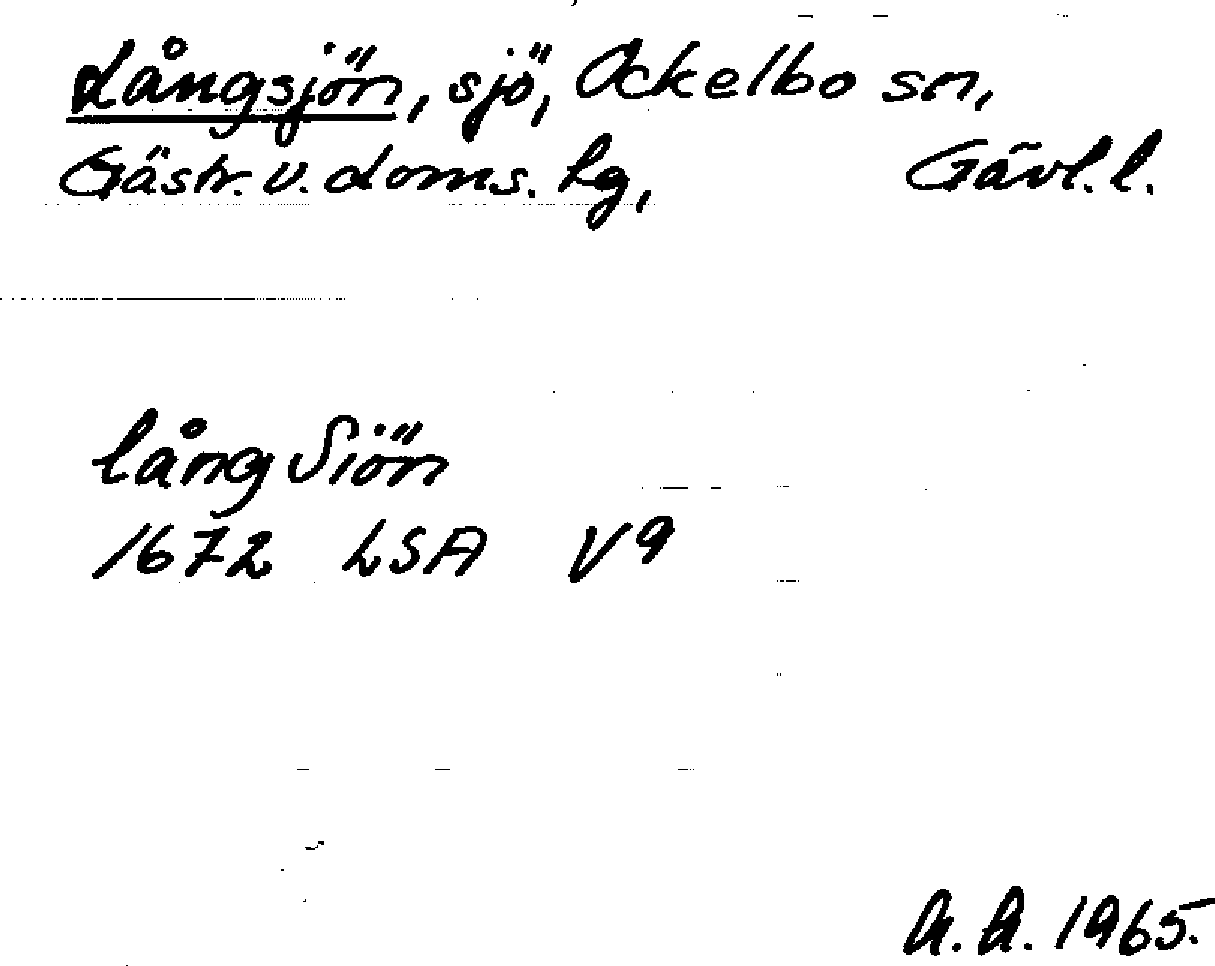 Långsjön, sjö, Ockelbo sn,
Gästr. v. doms. hg, Gävl. l.
lång Siön
1672 LSA V9
A. A. 1965.